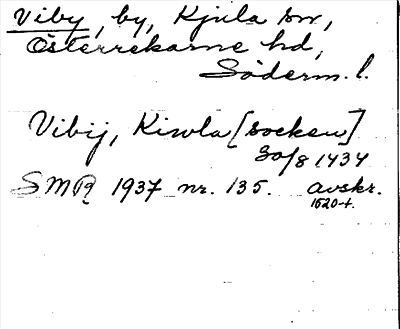 Viby, by, Kjula sn,
Österrekarne hd,
Söderm. l.
Vibij, Kiwla [socken]
30/8 1434
SMR 1937 nr. 135. avskr.
1520-t.